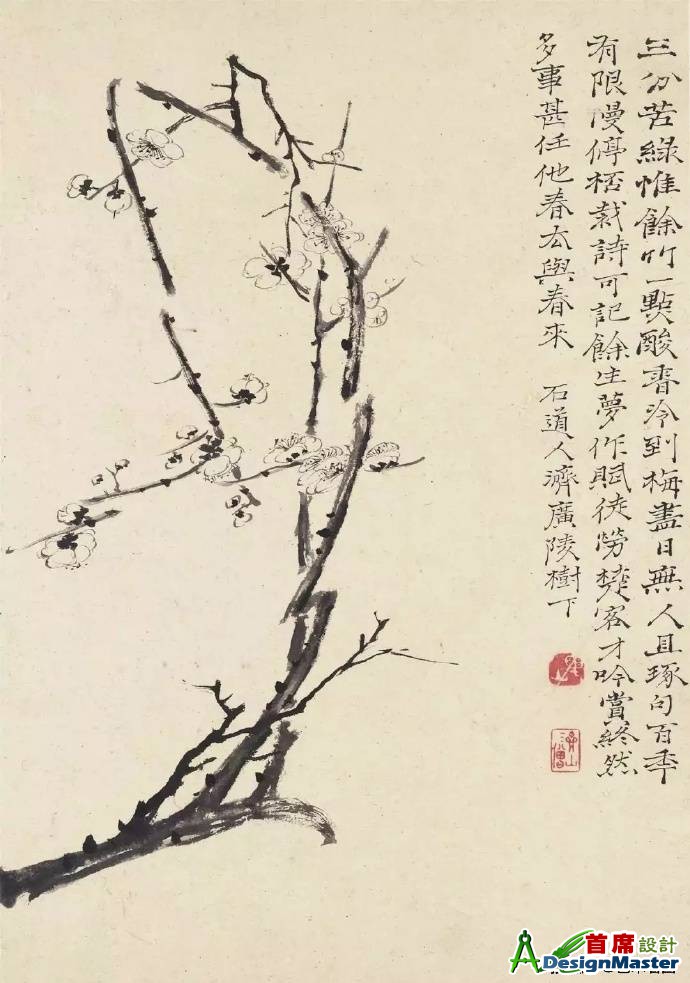 三分苦綠惟餘竹一點酸香冷到梅盡日無人且琢句百年
有限漫停桮裁詩可記餘生夢作賦徒勞楚客才吟賞終然
多事甚任他春去與春來 石道人濟廣陵樹下
首席設計
DesignMaster